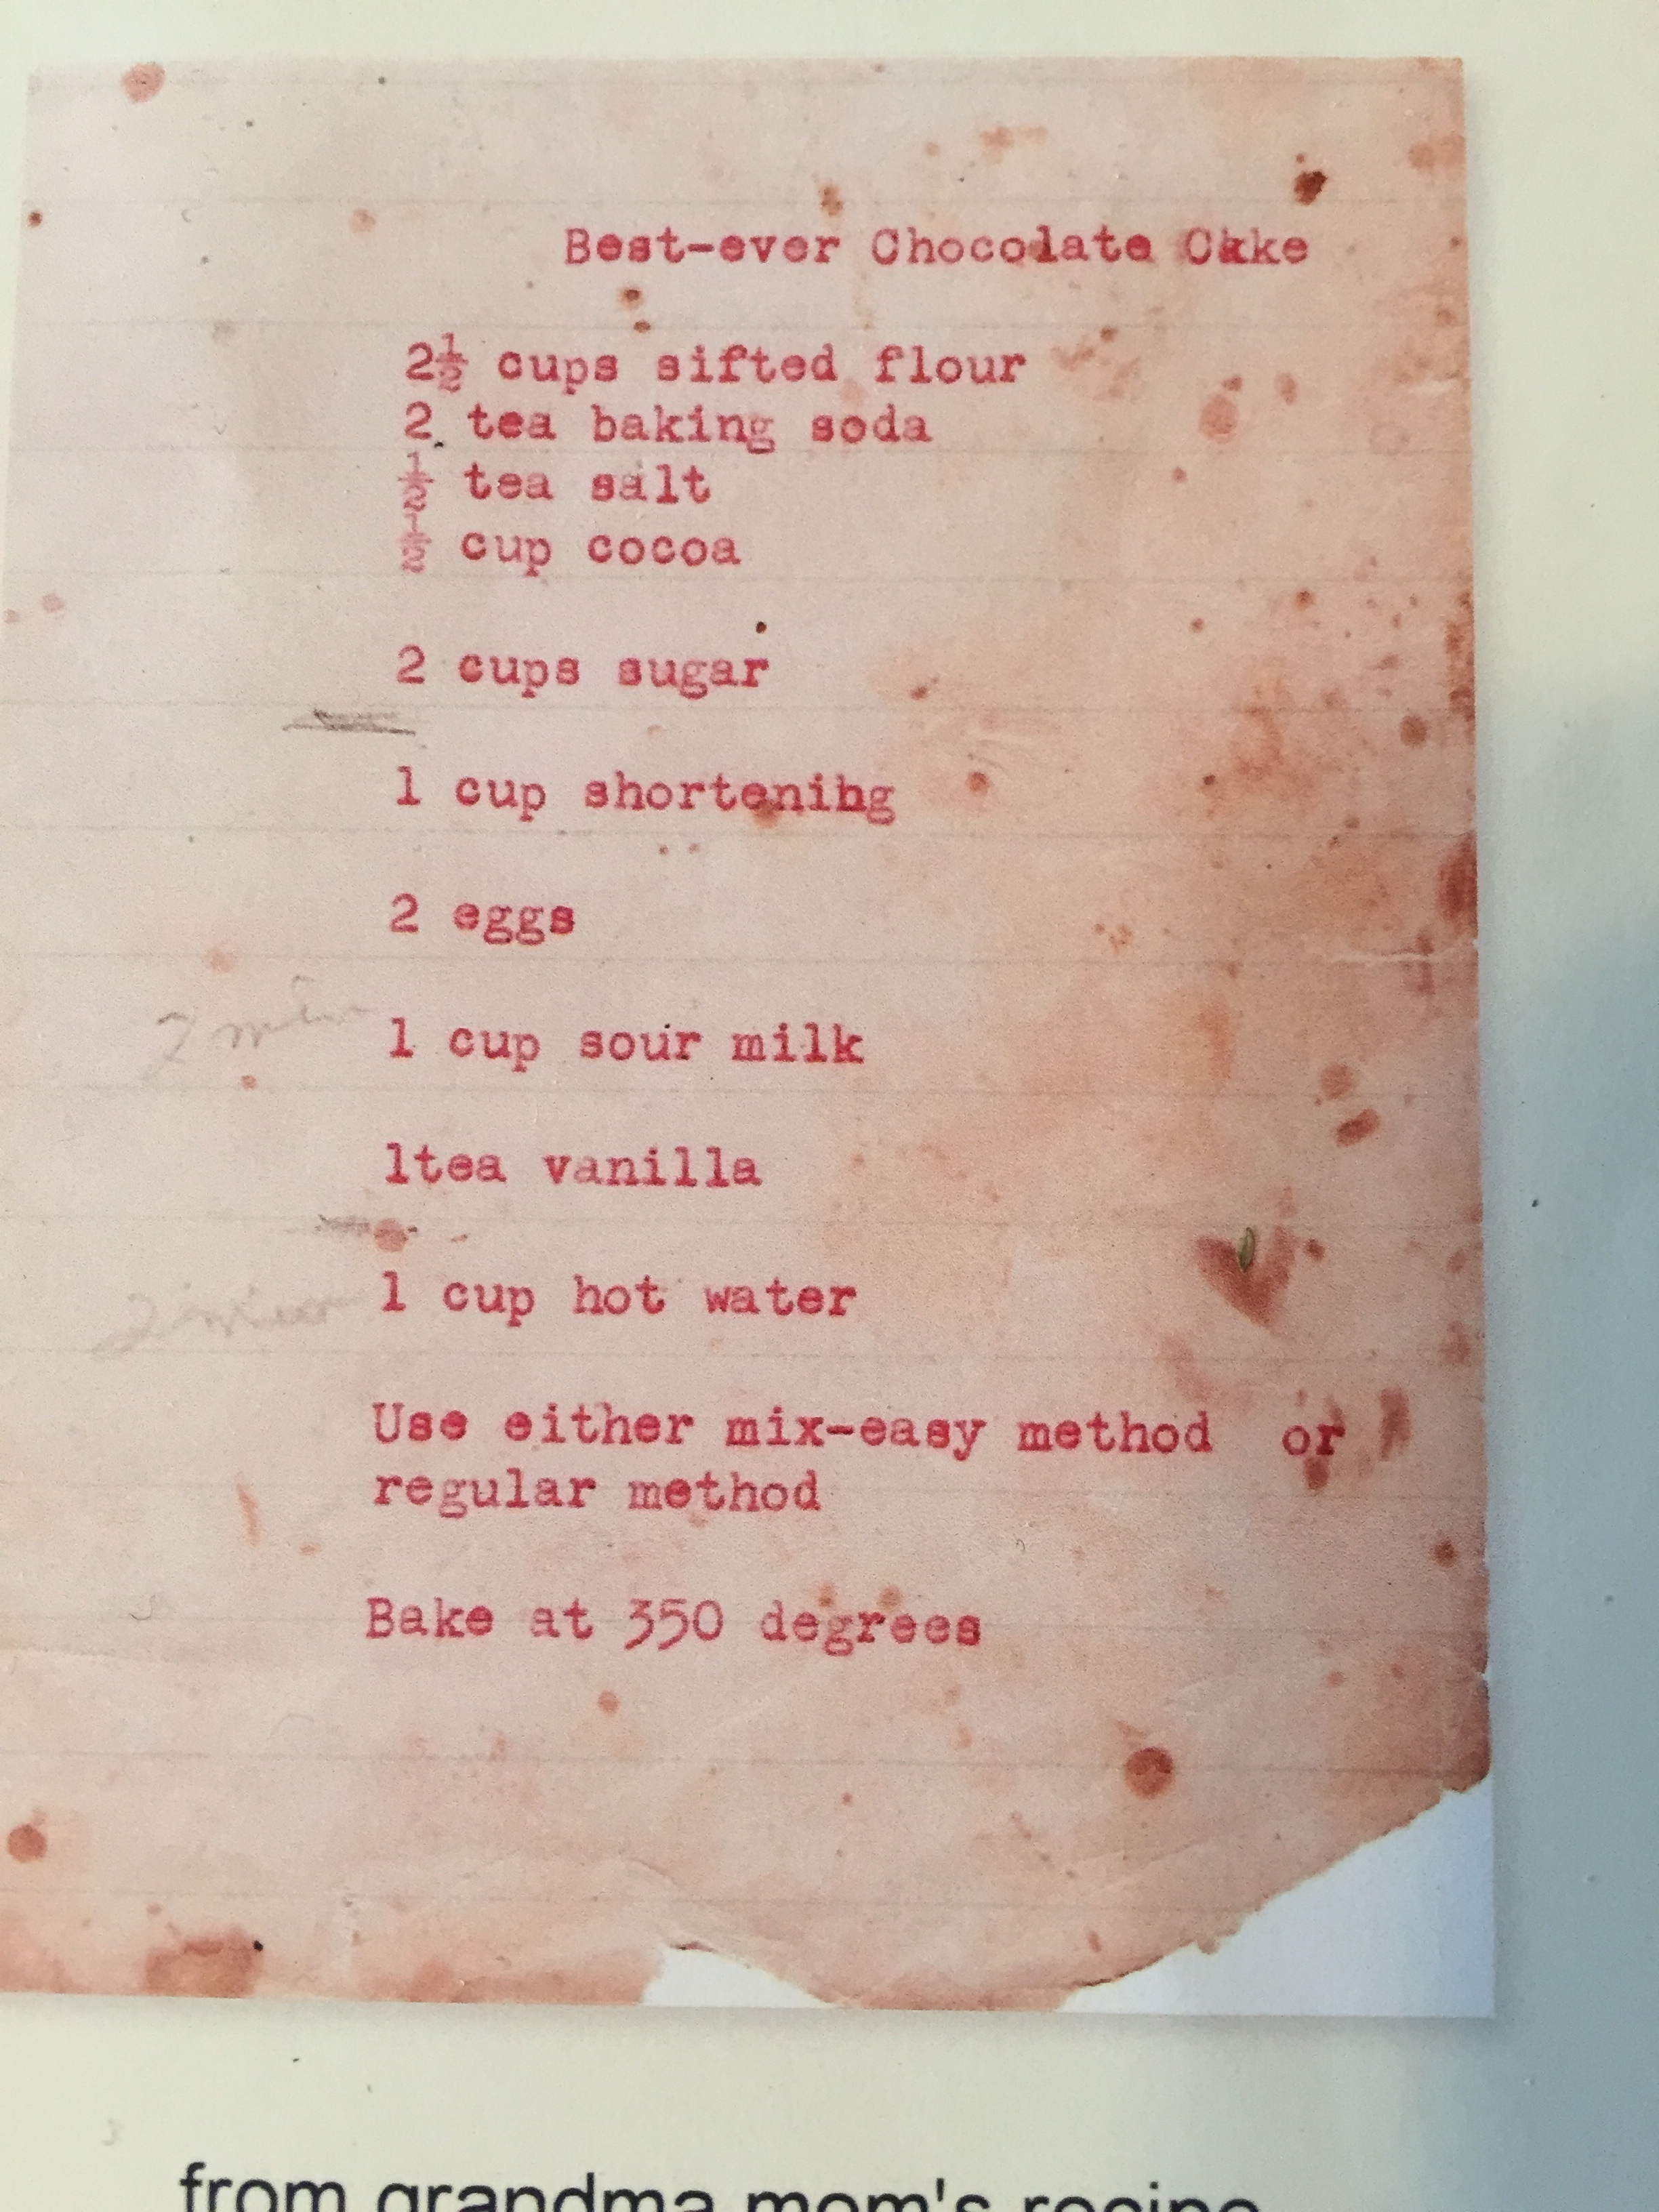 Best-ever Chocolate Cake
2½ cups sifted flour
2 tea baking soda
½ tea salt
½ cup cocoa
2 cups sugar
1 cup shortenihg
2 eggs
1 cup sour milk
1tea vanilla
1 cup hot water
Use either mix-easy method or
regular method
Bake at 350 degrees
from grandma mom's recipe